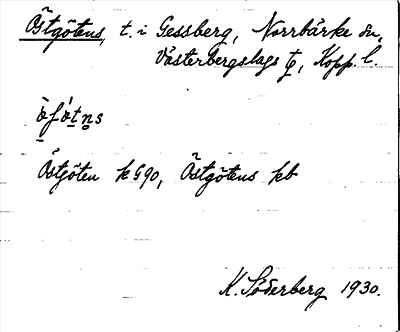 Östgötens, t. i Gessberg, Norrbärke sn,
Västerbergslags tg, Kopp. l.
Östgöten k G90, Östgötens kb
K. Söderberg 1930.